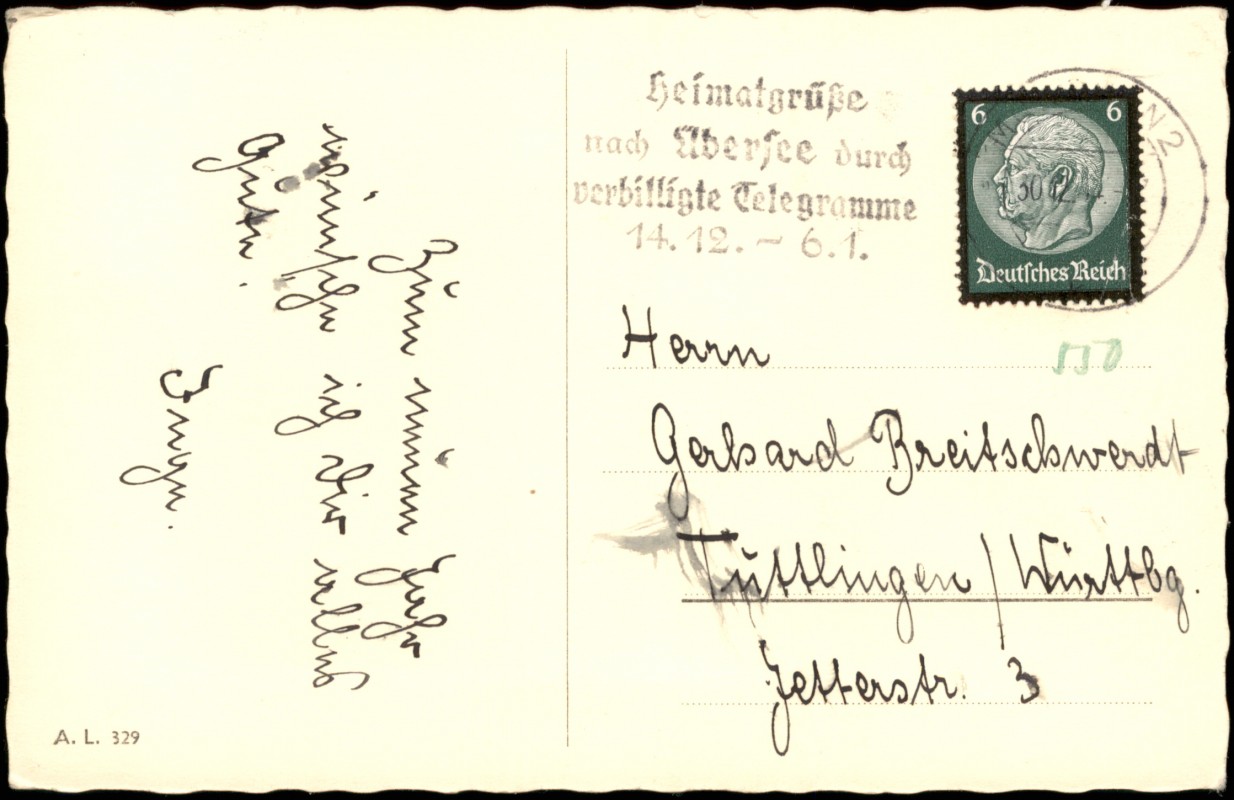 Heimatgrüße
nach Übersee durch
verbilligte Telegramme
14.12. – 6.1.
6 6
Deutsches Reich
30.12.
N 2
550
Herrn
Gerhard Breitschwerdt
Tuttlingen / Württbg.
Jetterstr. 3
Zum neuen Jahr
wünsche ich Dir alles
Gute.
Inge.
A. L. 329